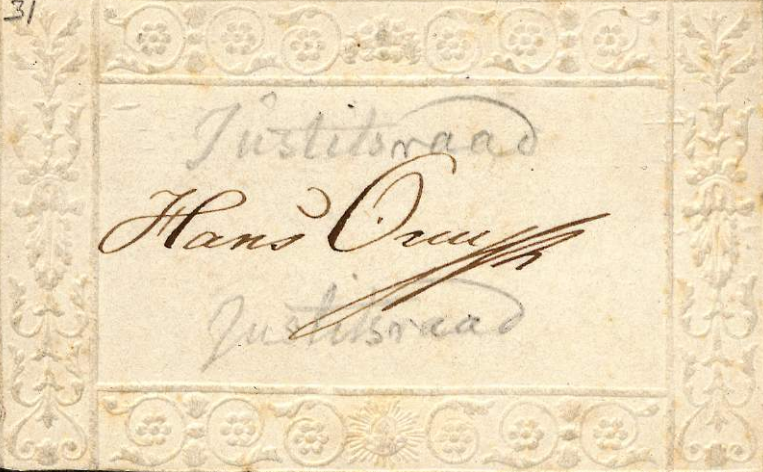 31
Justitsraad
Hans
Justitsraad